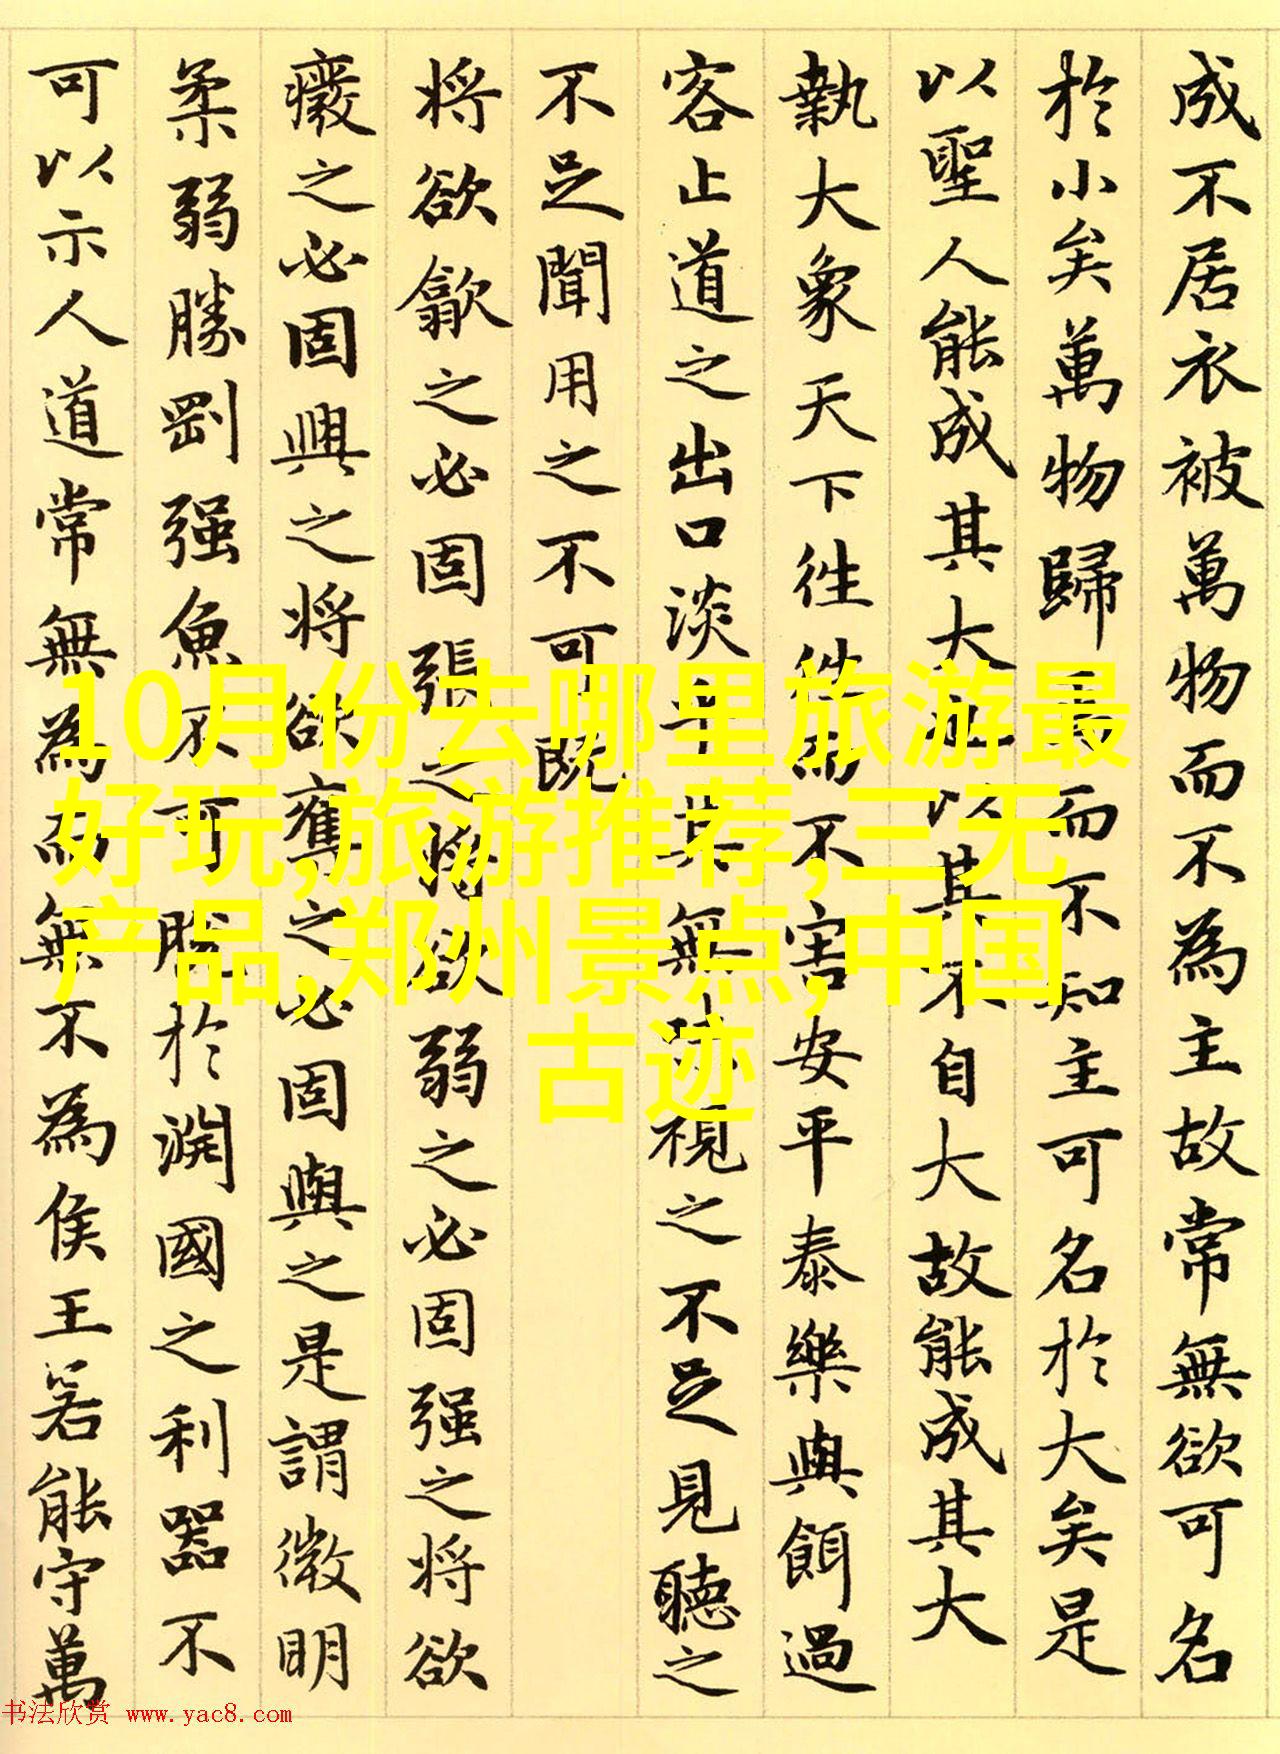 成不居衣被萬物而不為主故常無欲可名
於小矣萬物歸焉而不知主可名於大矣是
以聖人能成其大也以其不自大故能成其大
執大象天下往往而不害安平泰樂與餌過
客止道之出口淡乎其無味視之不足見聽之
不足聞用之不可既
将欲歙之必固張之将欲弱之必固强之将欲
癈之必固興之将欲奪之必固與之是謂微明
柔弱勝剛强魚不可脫於淵國之利器不
可以示人道常無為而無不為侯王若能守萬
10月份去哪里旅游最
好玩,旅游推荐,三无
产品,郑州景点,中国
古迹
书法欣赏 www.yac8.com